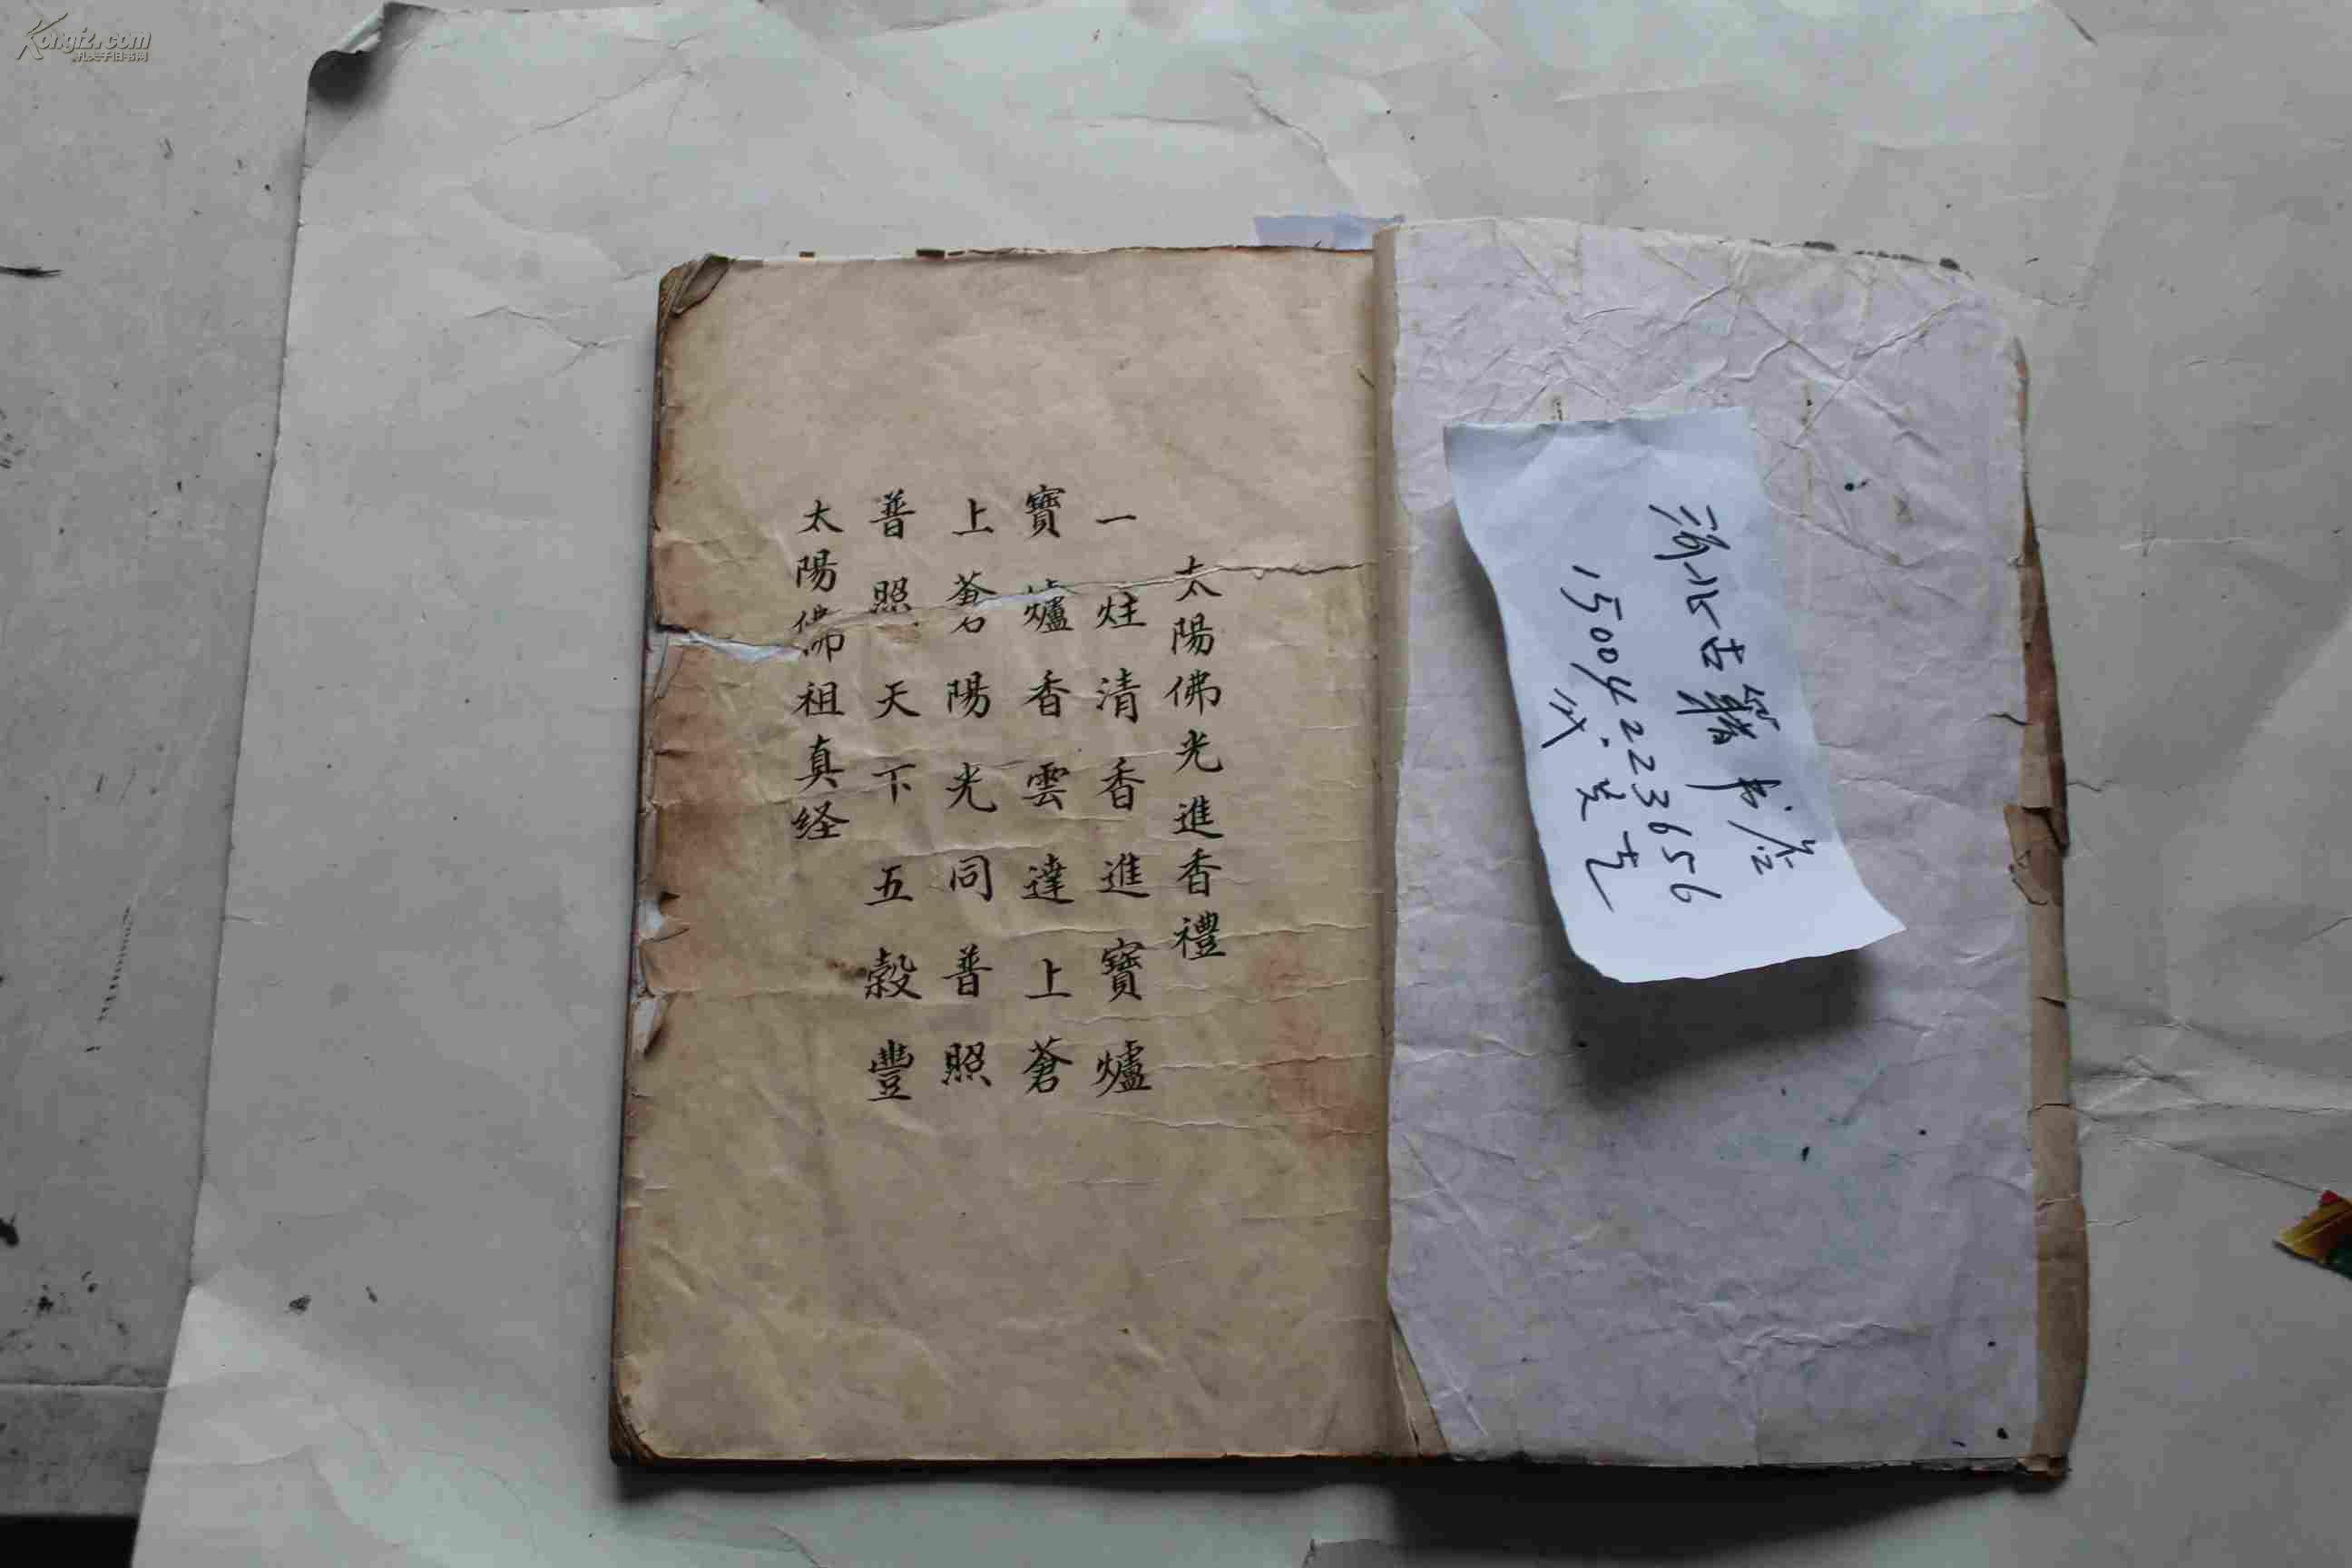 太陽佛光進香禮
一炷清香進寶爐
寶爐香雲達上蒼
上蒼陽光同普照
普照天下五榖豐
太陽佛祖真経
古籍书店
15004223656
Kongfz.com
孔夫子旧书网